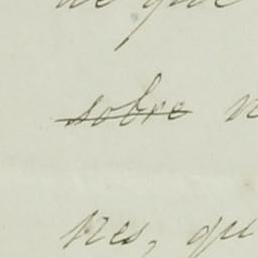 de que
sobre n
res, qu